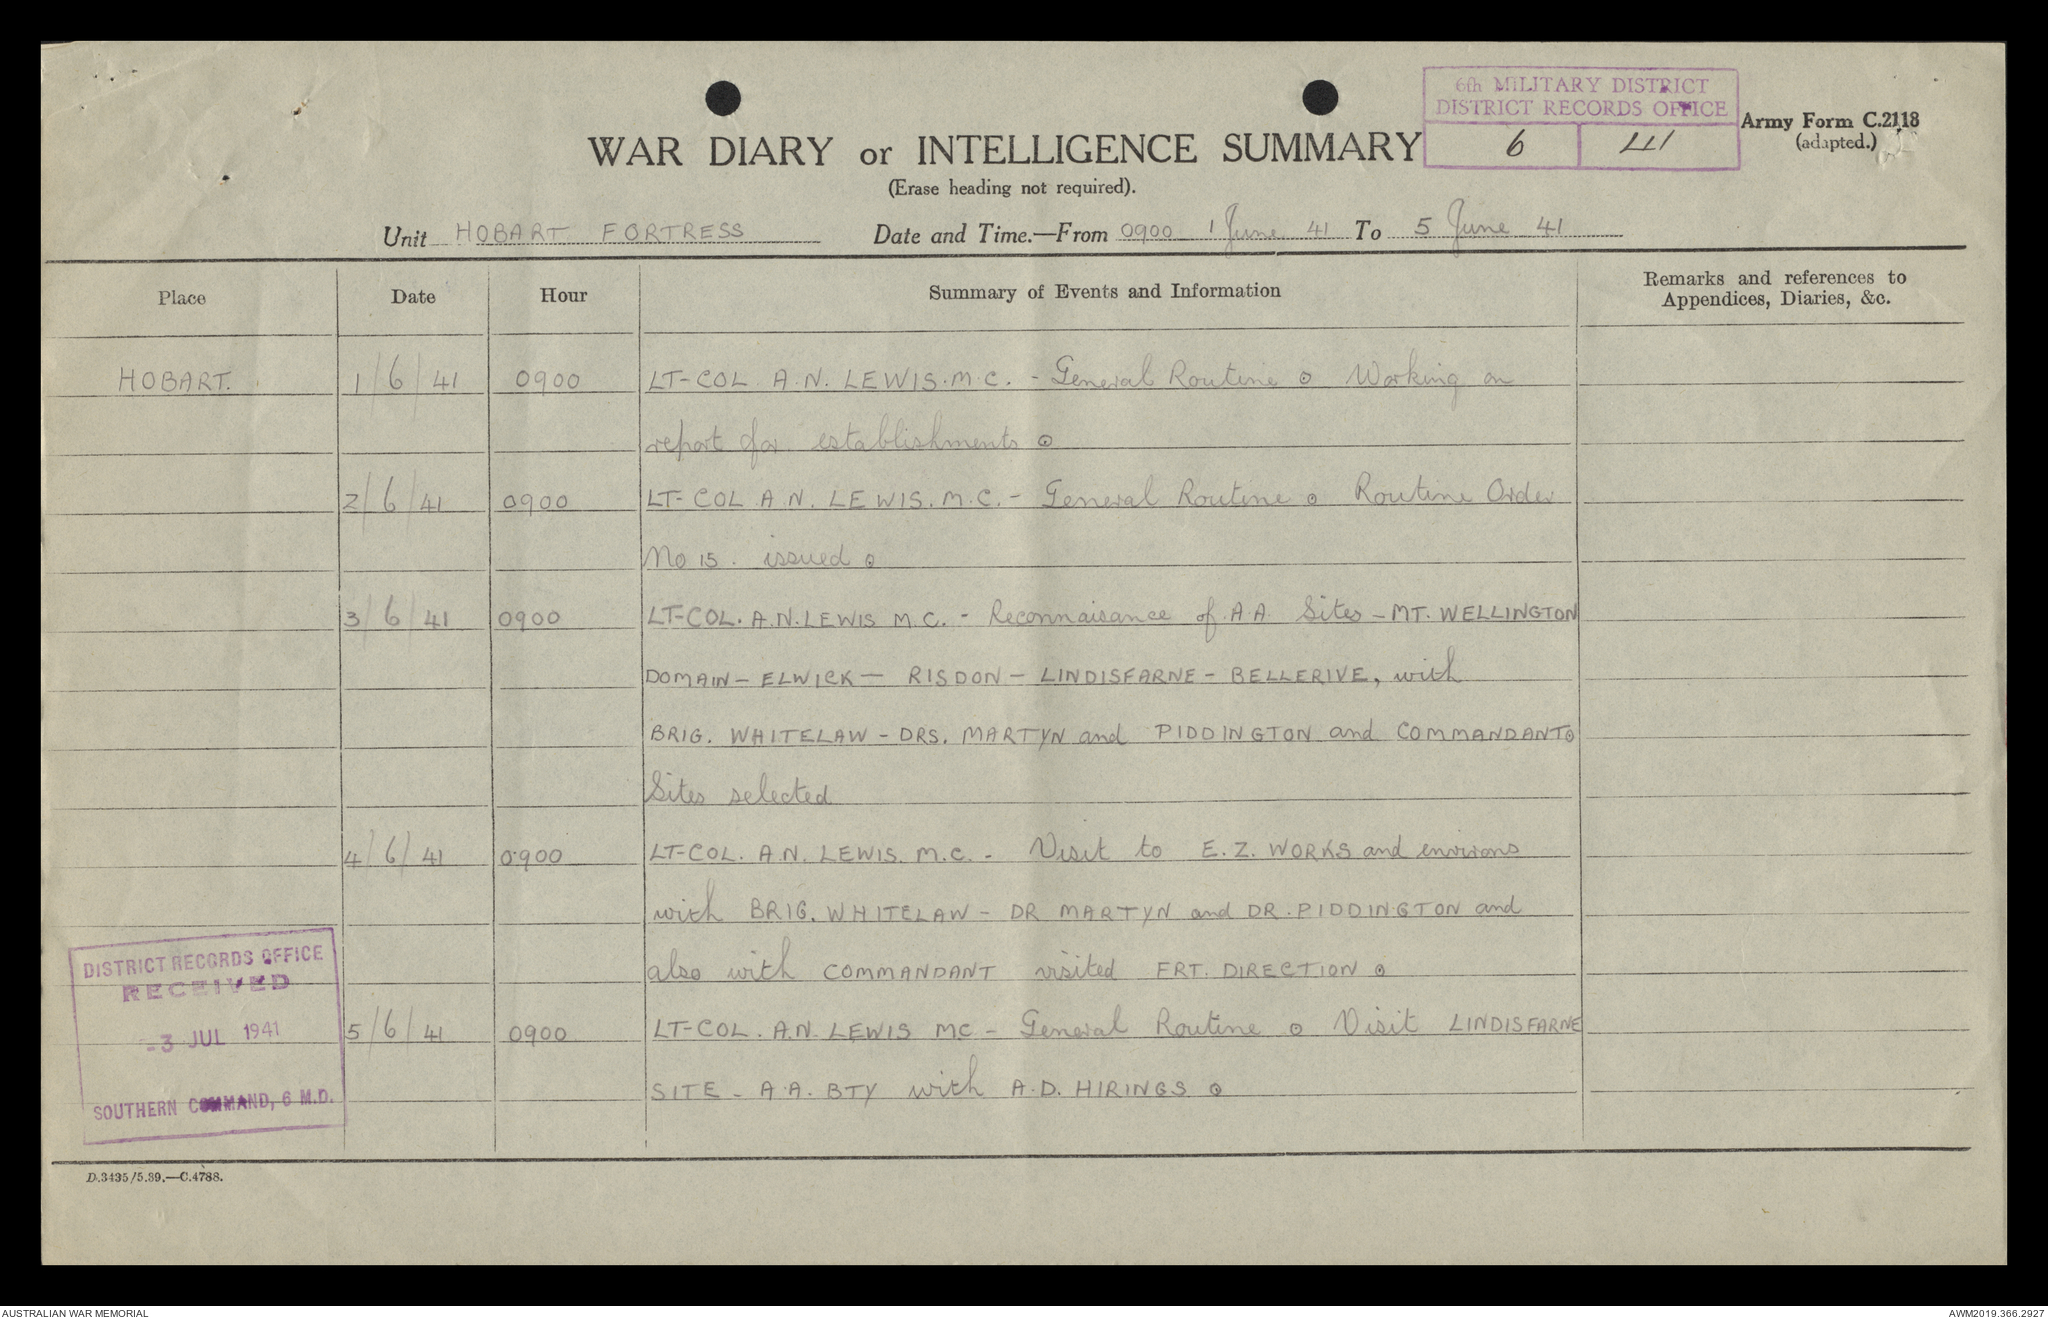 6th MILITARY DISTRICT
DISTRICT RECORDS OFFICE
6
Army Form C.2118
(adapted.)
WAR DIARY or INTELLIGENCE SUMMARY
(Erase heading not required).
Unit HOBART FORTRESS Date and Time.—From 0900 1 June 41 To 5 June 41
Place Date Hour Summary of Events and Information Remarks and references to Appendices, Diaries, &c.
HOBART. 1/6/41 0900 LT-COL. A.N. LEWIS.M.C. - General Routine ⊙ Working on
report for establishments ⊙
2/6/41 0900 LT-COL A.N. LEWIS. M.C. - General Routine ⊙ Routine Order
No 15. issued ⊙
3/6/41 0900 LT-COL. A.N. LEWIS M.C. - Reconnaisance of A.A. Sites - MT. WELLINGTON
DOMAIN - ELWICK - RISDON - LINDISFARNE - BELLERIVE, with
BRIG. WHITELAW - DRS. MARTYN and PIDDINGTON and COMMANDANT⊙
Sites selected
4/6/41 0900 LT-COL. A.N. LEWIS. M.C. - Visit to E.Z. WORKS and environs
with BRIG. WHITELAW - DR MARTYN and DR. PIDDINGTON and
also with COMMANDANT visited FRT. DIRECTION ⊙
5/6/41 0900 LT-COL. A.N. LEWIS MC - General Routine ⊙ Visit LINDISFARNE
SITE - A.A. BTY with A.D. HIRINGS ⊙
DISTRICT RECORDS OFFICE
RECEIVED
-3 JUL 1941
SOUTHERN COMMAND, 6 M.D.
D.3435/5.39.—C.4788.
AUSTRALIAN WAR MEMORIAL AWM2019.366.2927